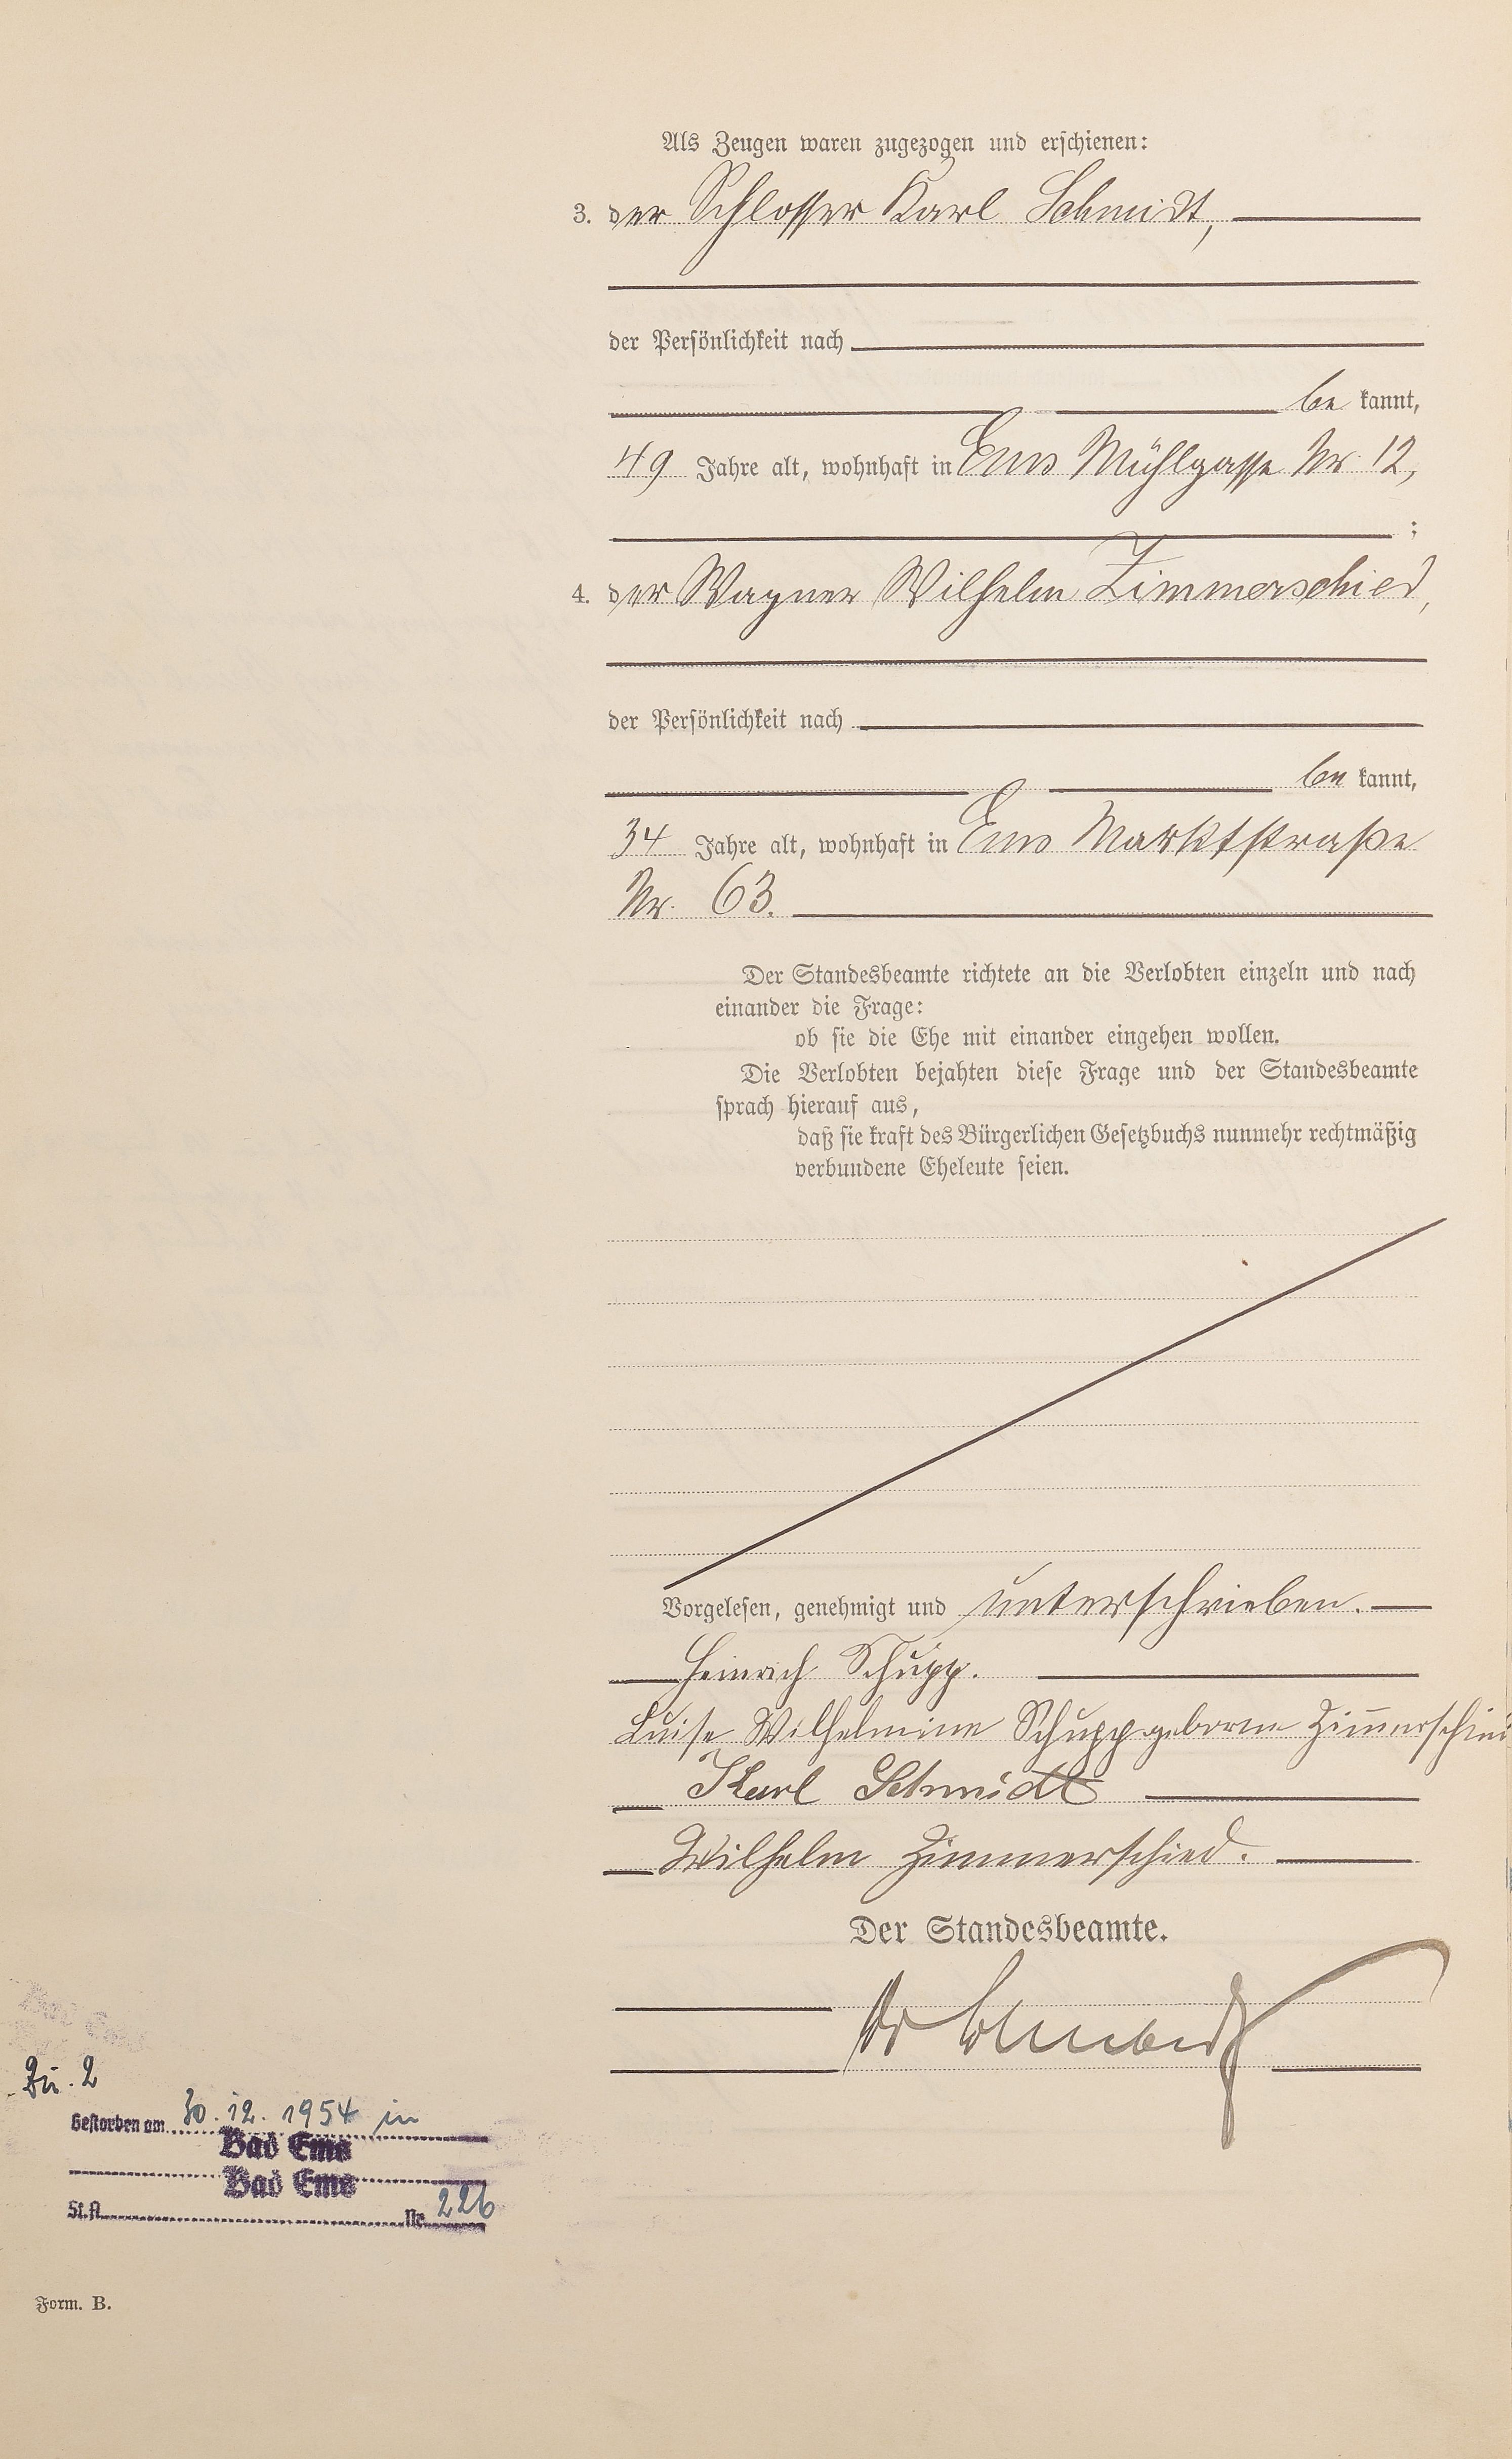 Als Zeugen waren zugezogen und erschienen:
3. der Schlosser Karl Schmidt,
der Persönlichkeit nach
be kannt,
49 Jahre alt, wohnhaft in Ems Mühlgasse Nr. 12,
;
4. der Wagner Wilhelm Zimmerschied,
der Persönlichkeit nach
be kannt,
34 Jahre alt, wohnhaft in Ems Marktstraße
Nr. 63.
Der Standesbeamte richtete an die Verlobten einzeln und nach
einander die Frage:
ob sie die Ehe mit einander eingehen wollen.
Die Verlobten bejahten diese Frage und der Standesbeamte
sprach hierauf aus,
daß sie kraft des Bürgerlichen Gesetzbuchs nunmehr rechtmäßig
verbundene Eheleute seien.
Vorgelesen, genehmigt und unterschrieben.
Heinrich Schupp.
Luise Wilhelmine Schupp geborene Zimmerschied
Karl Schmidt
Wilhelm Zimmerschied.
Der Standesbeamte.
Dr
Bad Ems
Zu. 2
Gestorben am 30. 12. 1954 in
Bad Ems
Bad Ems
St.A. Nr. 226
Form. B.